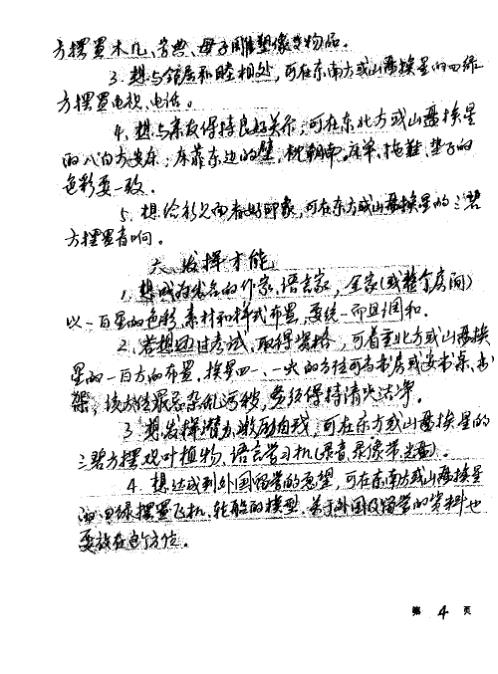 方摆置木几、字典、母子雕塑像等物品。
3. 想与邻居和睦相处,可在东南方或山叠挨星的四绿
方摆置电视、电话。
4. 想与亲友保持良好关系,可在东北方或山叠挨星
的八白方安床,床靠东边的壁,枕朝南。床单、拖鞋、垫子的
色彩要一致。
5. 想给初见面者好印象,可在东方或山叠挨星的三碧
方摆置音响。
六、发挥才能
1. 想成为出名的作家、语言家,全家(或整个房间)
以一白星的色彩、素材和样式布置,要统一而且调和。
2. 若想通过考试、取得资格,可着重北方或山叠挨
星的一白方的布置,挨星四一、一六的方位可为书房或安书桌、书
架,该方位最忌杂乱污秽,务须保持清火洁净。
3. 想发挥潜力激励自我,可在东方或山叠挨星的
三碧方摆观叶植物、语言学习机(录音、录像带也可)。
4. 想达成到外国留学的愿望,可在东南方或山叠挨星
的四绿摆置飞机、轮船的模型,关于外国及留学的资料也
要放在这个方位。
第 4 页